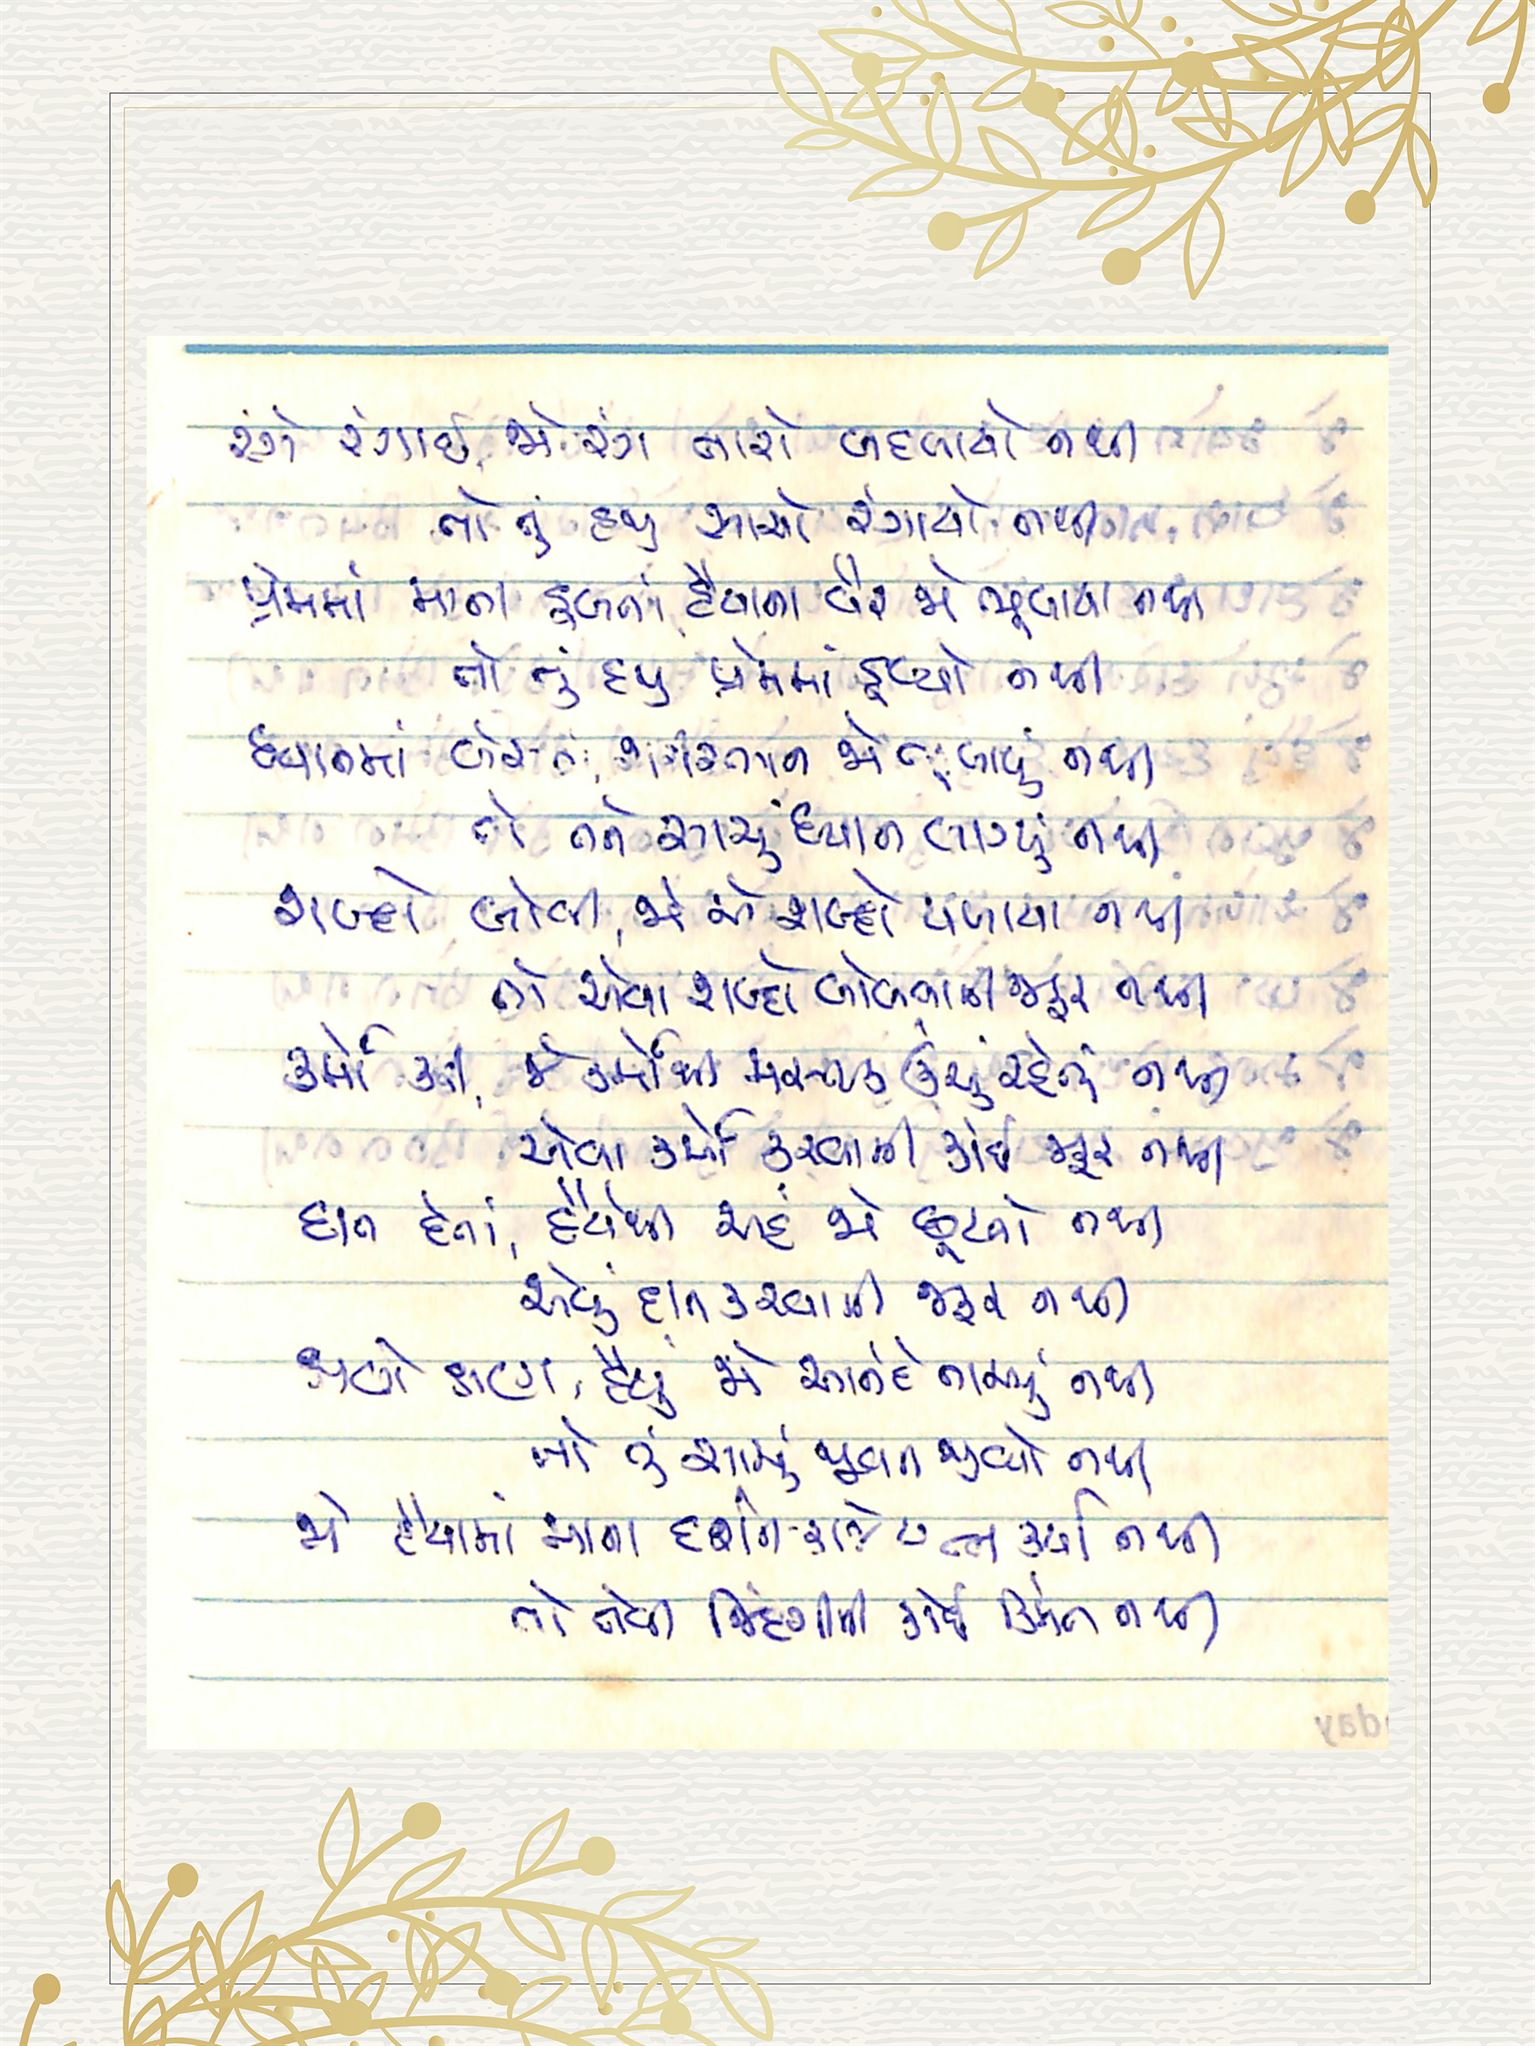 રંગે રંગાઈ, જો રંગ તારો બદલાયો નથી
તો તું હજુ સાચો રંગાયો નથી
પ્રેમમાં માના ડૂબતાં, હૈયાના વેર જો ભૂલાયા નથી
તો તું હજુ પ્રેમમાં ડૂબ્યો નથી
ધ્યાનમાં બેસતાં, શરીરભાન જો ભૂલાયું નથી
તો તને સાચું ધ્યાન લાગ્યું નથી
શબ્દો બોલી, જો એ શબ્દો પળાયા નથી
તો એવા શબ્દો બોલવાની જરૂર નથી
કર્મો કરી, જે કર્મોથી મસ્તક ઉંચું રહેતું નથી
એવા કર્મો કરવાની કોઈ જરૂર નથી
દાન દેતાં, હૈયેથી અહં જો છૂટયો નથી
એવું દાન કરવાની જરૂર નથી
ક્ષણે ક્ષણ, હૈયું જો આનંદે નાચ્યું નથી
તો તું સાચું જીવન જીવ્યો નથી
જો હૈયામાં માના દર્શન કાજે યત્ન કર્યા નથી
તો તેવી જિંદગીની કોઈ કિંમત નથી